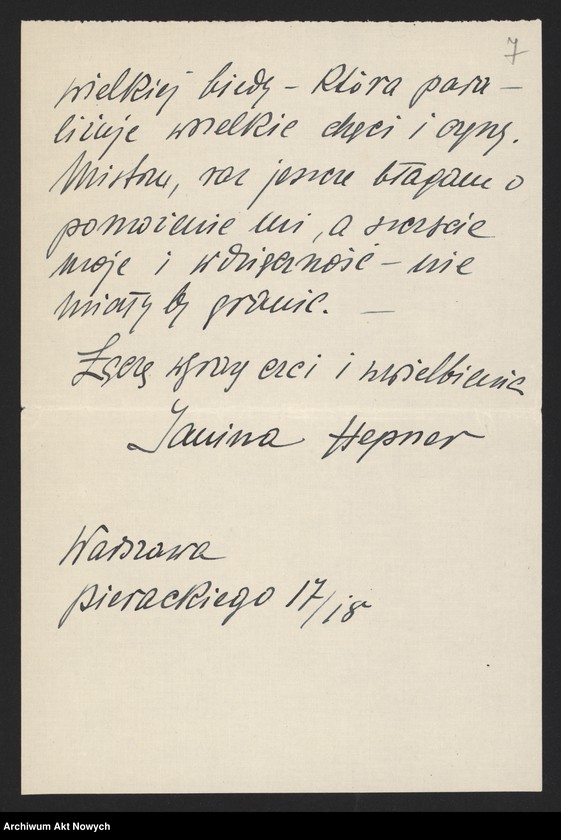 7
wielkiej biedy – która para –
liżuje wszelkie chęci i czyny.
Mistrzu, raz jeszcze błagam o
pomożenie mi, a szczęście
moje i wdzięczność – nie
miały by granic. —
Łączę wyrazy czci i uwielbienia
Janina Hepner
Warszawa
Pierackiego 17/18
Archiwum Akt Nowych